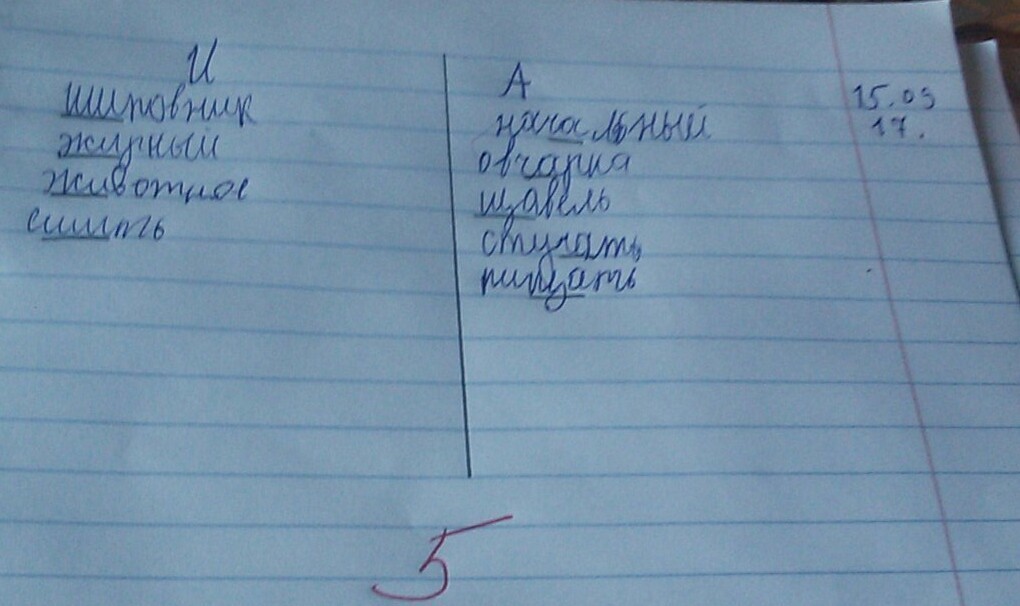 И
шиповник
жирный
животное
сшить
А
начальный
овчарка
щавель
стучать
пищать
15.09
17.
5